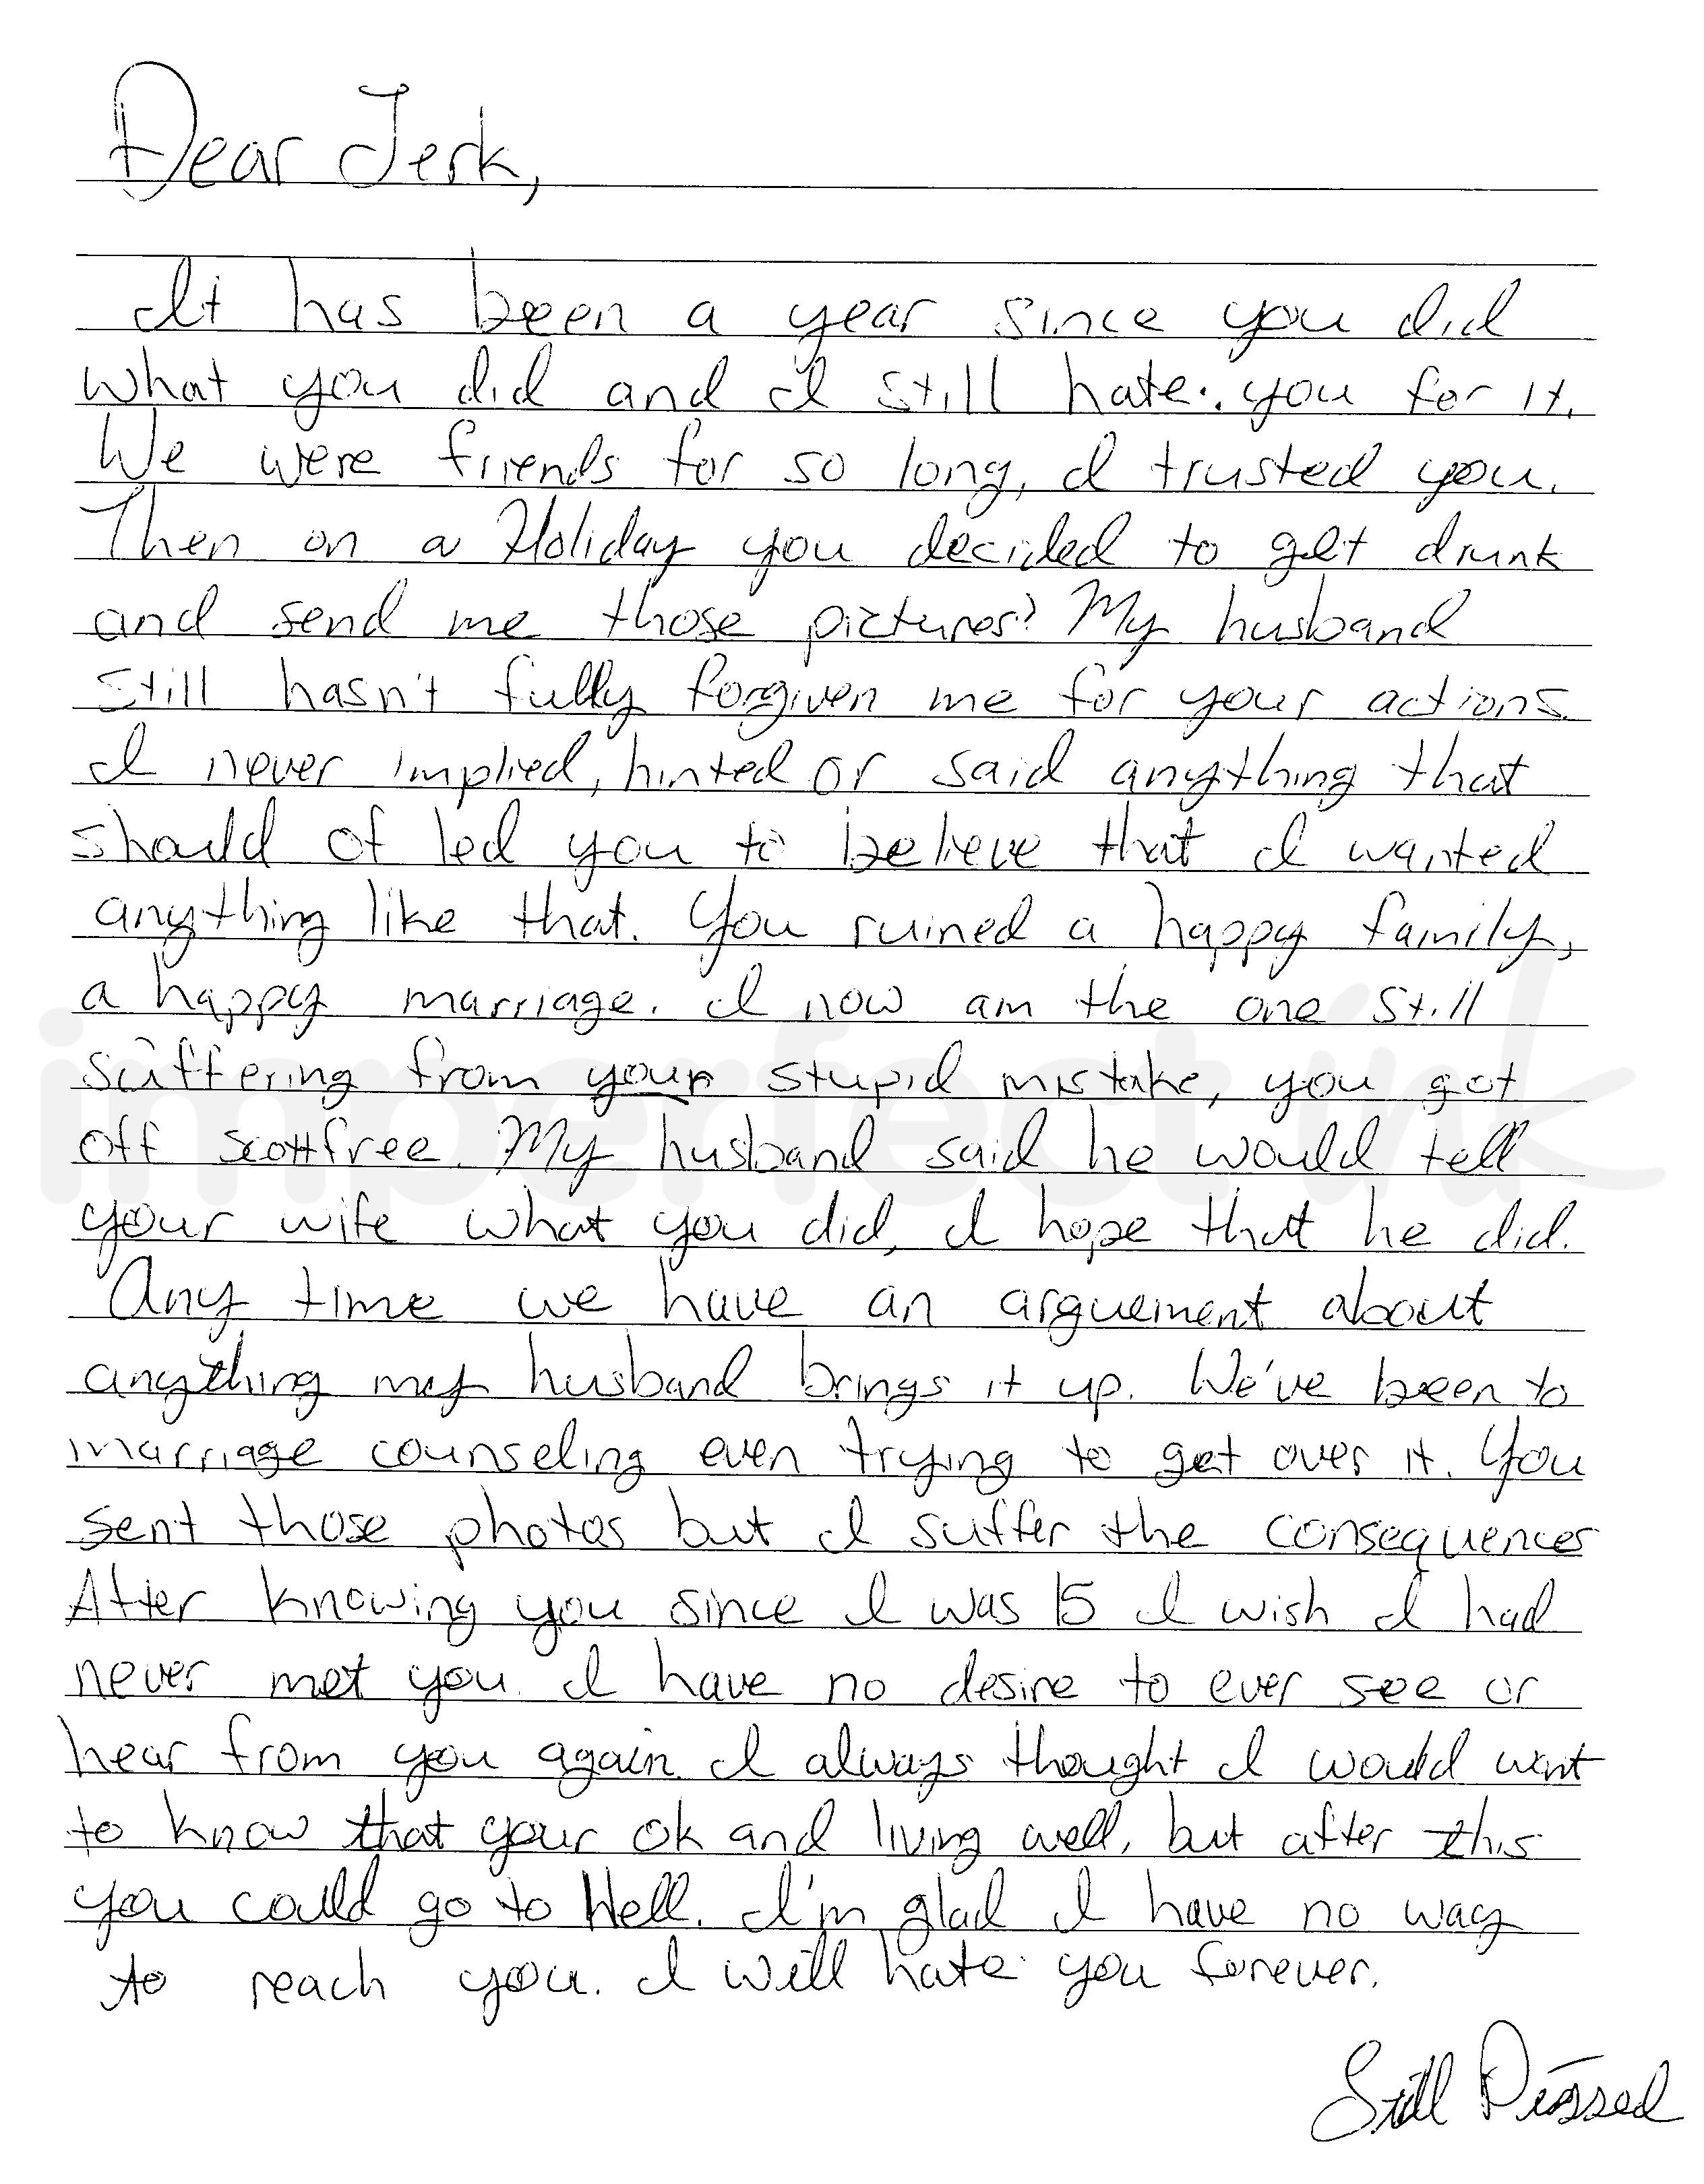 Dear Jerk,
It has been a year since you did
what you did and I still hate you for it.
We were friends for so long, I trusted you.
Then on a Holiday you decided to get drunk
and send me those pictures? My husband
still hasn't fully forgiven me for your actions.
I never implied, hinted or said anything that
should of led you to believe that I wanted
anything like that. You ruined a happy family,
a happy marriage. I now am the one still
suffering from your stupid mistake, you got
off scottfree. My husband said he would tell
your wife what you did, I hope that he did.
Any time we have an arguement about
anything my husband brings it up. We've been to
marriage counseling even trying to get over it. You
sent those photos but I suffer the consequences
After knowing you since I was 15 I wish I had
never met you. I have no desire to ever see or
hear from you again. I always thought I would want
to know that your ok and living well, but after this
you could go to Hell. I'm glad I have no way
to reach you. I will hate you forever.
Still Pissed
imperfect ink